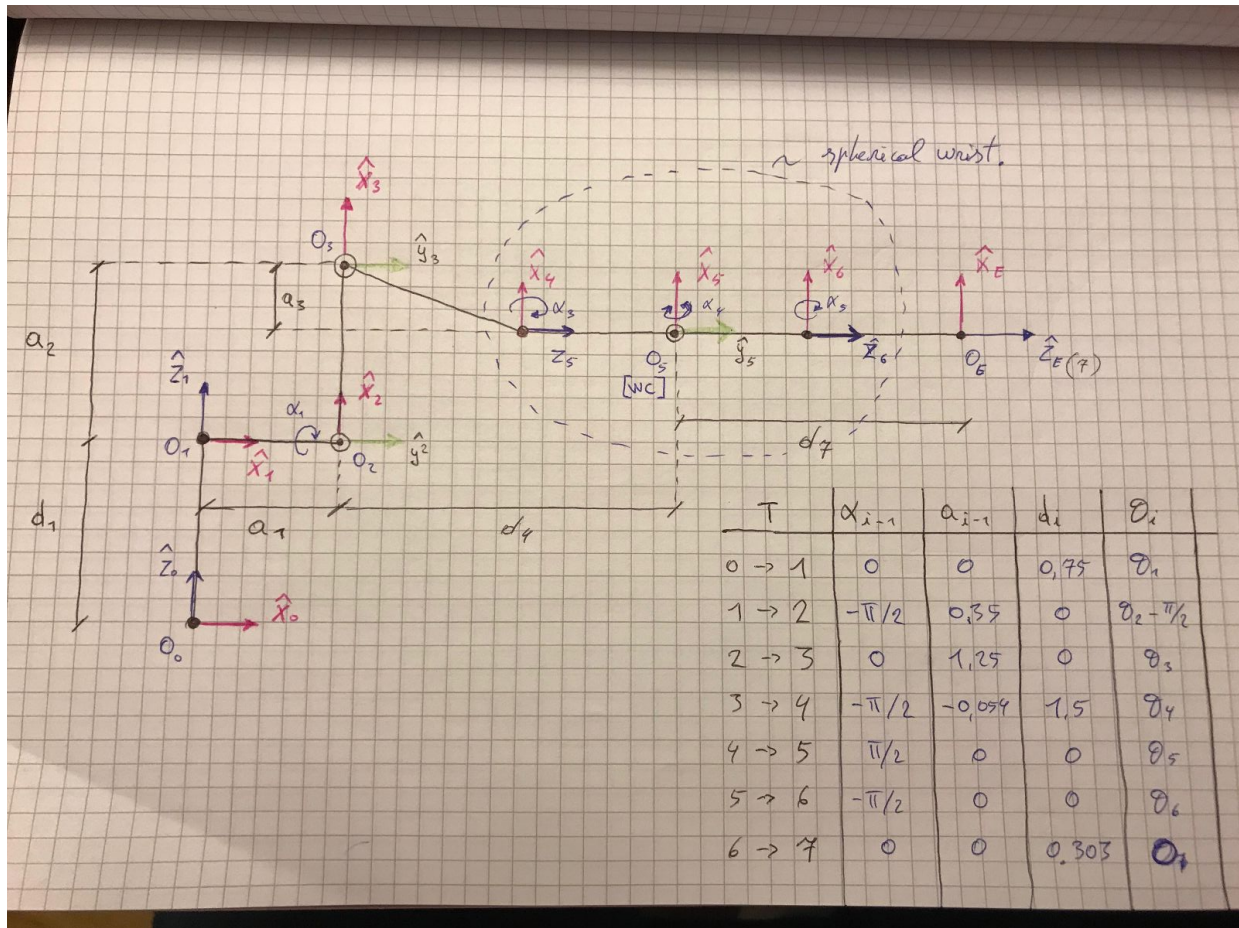 ~ spherical wrist.
X̂₃
O₃
ŷ₃
a₃
a₂
X̂₄
α₃
Z₅
X̂₅
α₄
O₅
[WC]
ŷ₅
X̂₆
α₅
Ẑ₆
X̂E
O₆
ẐE(7)
Ẑ₁
α₁
X̂₂
O₁
X̂₁
O₂
ŷ²
d₇
d₁
a₁
d₄
Ẑ₀
X̂₀
O₀
T αi-1 ai-1 di θi
0 → 1 0 0 0,75 θ₁
1 → 2 -π/2 0,35 0 θ₂ - π/2
2 → 3 0 1,25 0 θ₃
3 → 4 -π/2 -0,054 1,5 θ₄
4 → 5 π/2 0 0 θ₅
5 → 6 -π/2 0 0 θ₆
6 → 7 0 0 0.303